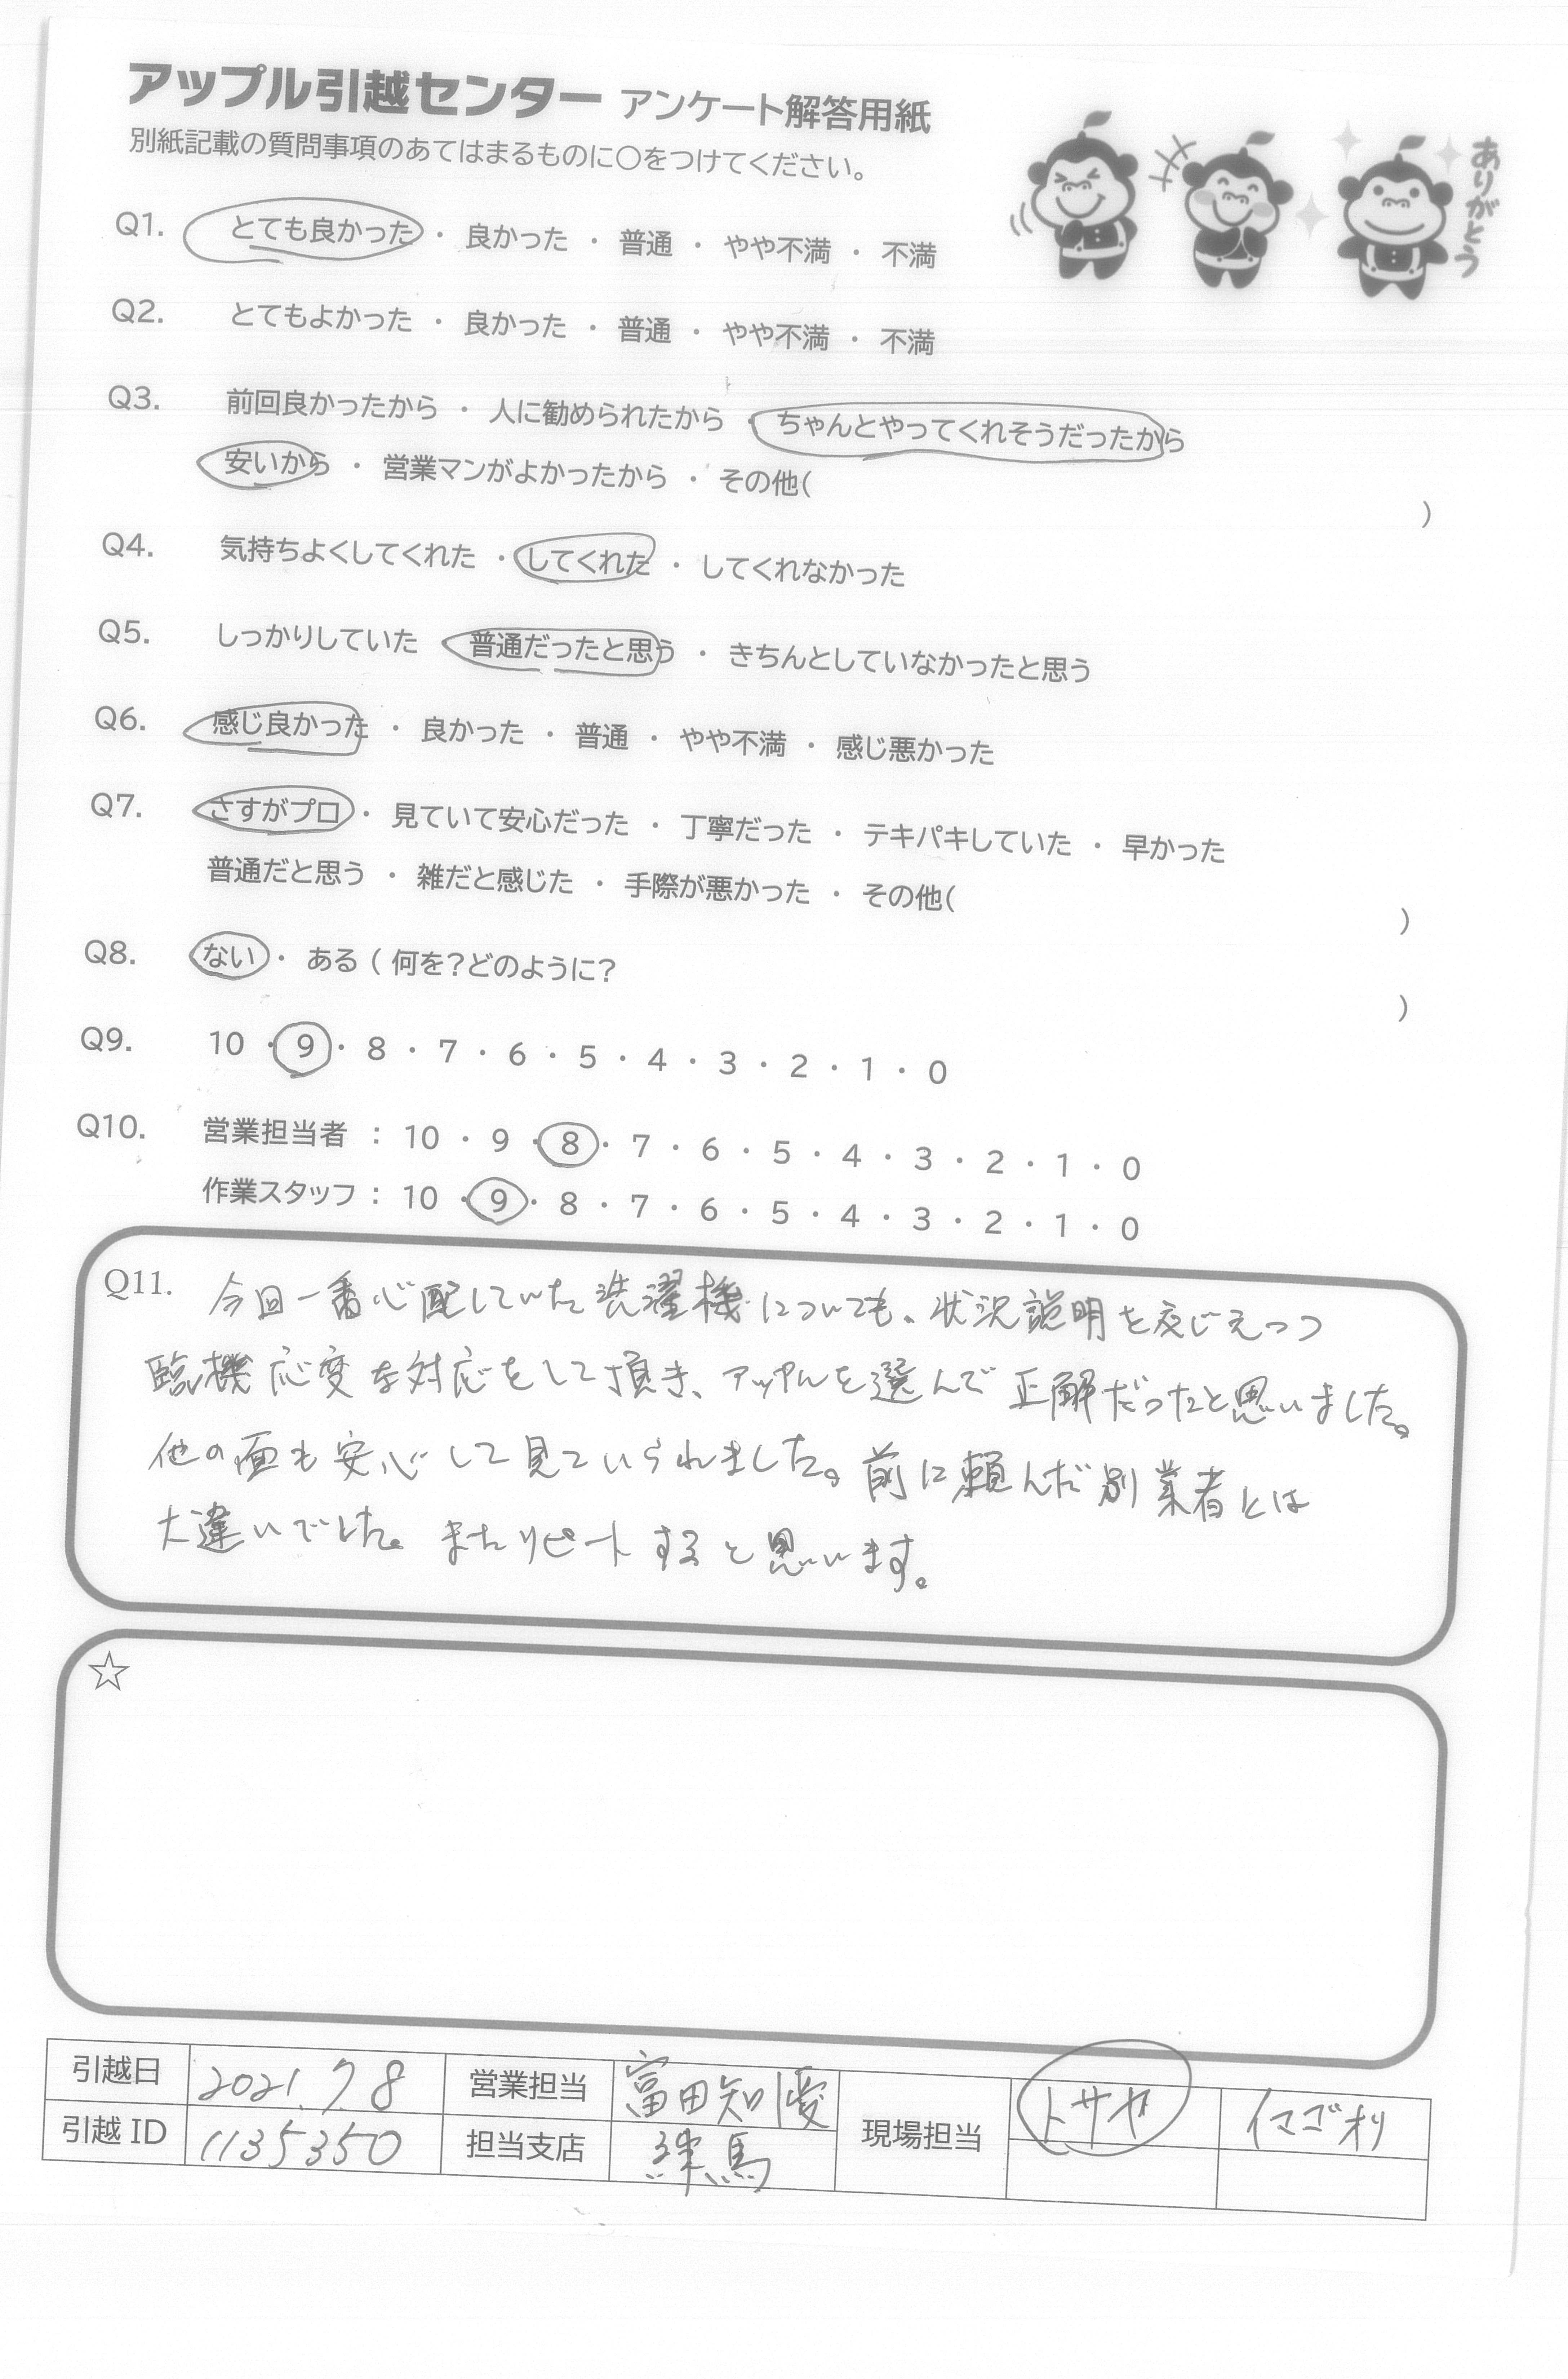 アップル引越センター アンケート解答用紙
別紙記載の質問事項のあてはまるものに〇をつけてください。
ありがとう
Q1. とても良かった ・ 良かった ・ 普通 ・ やや不満 ・ 不満
Q2. とてもよかった ・ 良かった ・ 普通 ・ やや不満 ・ 不満
Q3. 前回良かったから ・ 人に勧められたから ・ ちゃんとやってくれそうだったから
安いから ・ 営業マンがよかったから ・ その他( )
Q4. 気持ちよくしてくれた ・ してくれた ・ してくれなかった
Q5. しっかりしていた 普通だったと思う ・ きちんとしていなかったと思う
Q6. 感じ良かった ・ 良かった ・ 普通 ・ やや不満 ・ 感じ悪かった
Q7. さすがプロ ・ 見ていて安心だった ・ 丁寧だった ・ テキパキしていた ・ 早かった
普通だと思う ・ 雑だと感じた ・ 手際が悪かった ・ その他( )
Q8. ない ・ ある ( 何を?どのように? )
Q9. 10 ・ 9 ・ 8 ・ 7 ・ 6 ・ 5 ・ 4 ・ 3 ・ 2 ・ 1 ・ 0
Q10. 営業担当者 : 10 ・ 9 ・ 8 ・ 7 ・ 6 ・ 5 ・ 4 ・ 3 ・ 2 ・ 1 ・ 0
作業スタッフ : 10 ・ 9 ・ 8 ・ 7 ・ 6 ・ 5 ・ 4 ・ 3 ・ 2 ・ 1 ・ 0
Q11. 今回一番心配していた洗濯機についても、状況説明を交じえつつ
臨機応変な対応をして頂き、アップルを選んで正解だったと思いました。
他の面も安心して見ていられました。前に頼んだ別業者とは
大違いでした。またリピートすると思います。
☆
引越日 2021.7.8 営業担当 富田知優 現場担当 トサヤ イマゴオリ
引越 ID 1135350 担当支店 練馬